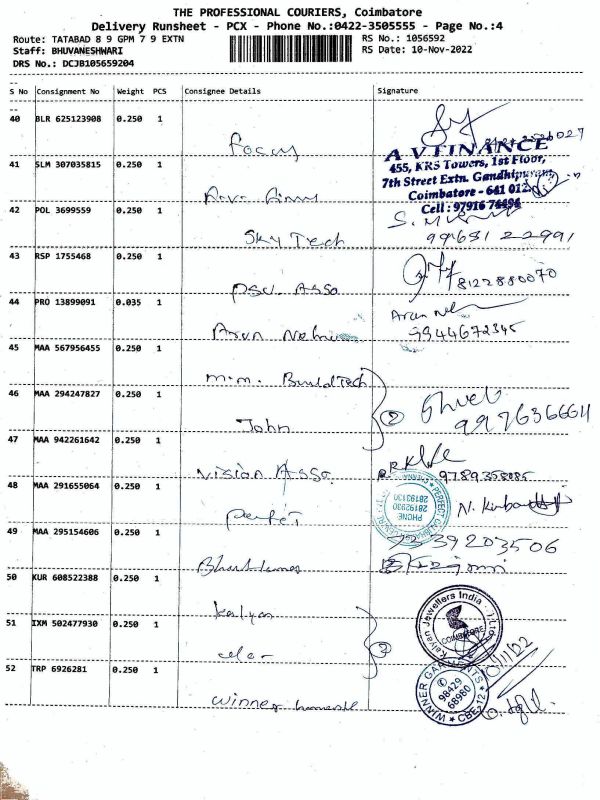 THE PROFESSIONAL COURIERS, Coimbatore
Delivery Runsheet - PCX - Phone No.:0422-3505555 - Page No.:4
Route: TATABAD 8 9 GPM 7 9 EXTN RS No.: 1056592
Staff: BHUVANESHWARI RS Date: 10-Nov-2022
DRS No.: DCJB105659204
S No Consignment No Weight PCS Consignee Details Signature
40 BLR 625123908 0.250 1
Focus
A V FINANCE
455, KRS Towers, 1st Floor,
7th Street Extn. Gandhipuram,
Coimbatore - 641 012
Cell : 97916 74494
41 SLM 307035815 0.250 1
42 POL 3699559 0.250 1
Sky Tech 99681 22991
43 RSP 1755468 0.250 1
PSV Asso 8122880070
44 PRO 13899091 0.035 1
Arun Nehru Arun 9944672345
45 MAA 567956455 0.250 1
m.m. BuildTech
46 MAA 294247827 0.250 1
John 2 9976366611
47 MAA 942261642 0.250 1
Vision Asso 9789358085
48 MAA 291655064 0.250 1
Perfet
PERFECT
PHONE
28192930
28193130
49 MAA 295154606 0.250 1
39203506
50 KUR 608522388 0.250 1
Kalyan
Kalyan Jewellers India
COIMBATORE
51 IXM 502477930 0.250 1
10/11/22
52 TRP 6926281 0.250 1
Winner
WINNER GARMENTS
98429
68980
CBE-12